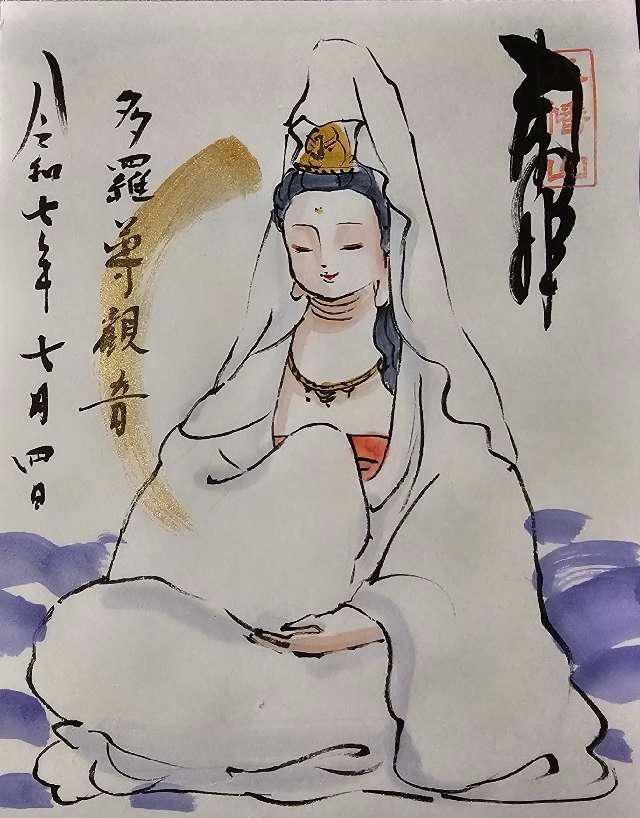 奉拝
多羅尊觀音
令和七年七月四日